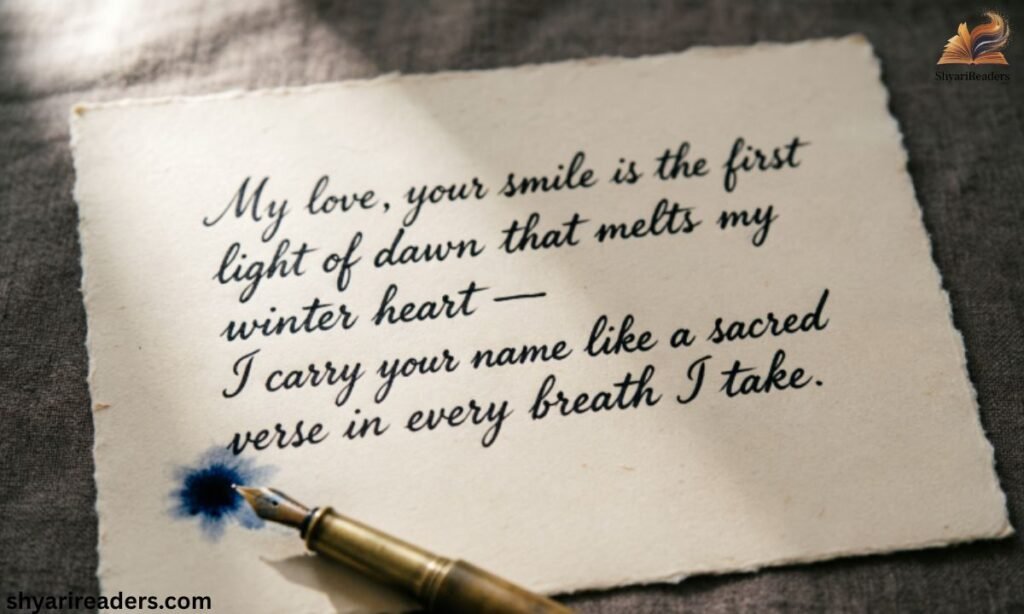 ShyariReaders
My love, your smile is the first
light of dawn that melts my
winter heart —
I carry your name like a sacred
verse in every breath I take.
shyarireaders.com